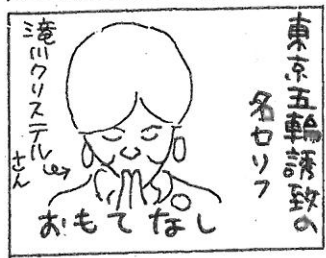 東京五輪誘致の
名セリフ
滝川クリステル
さん
おもてなし